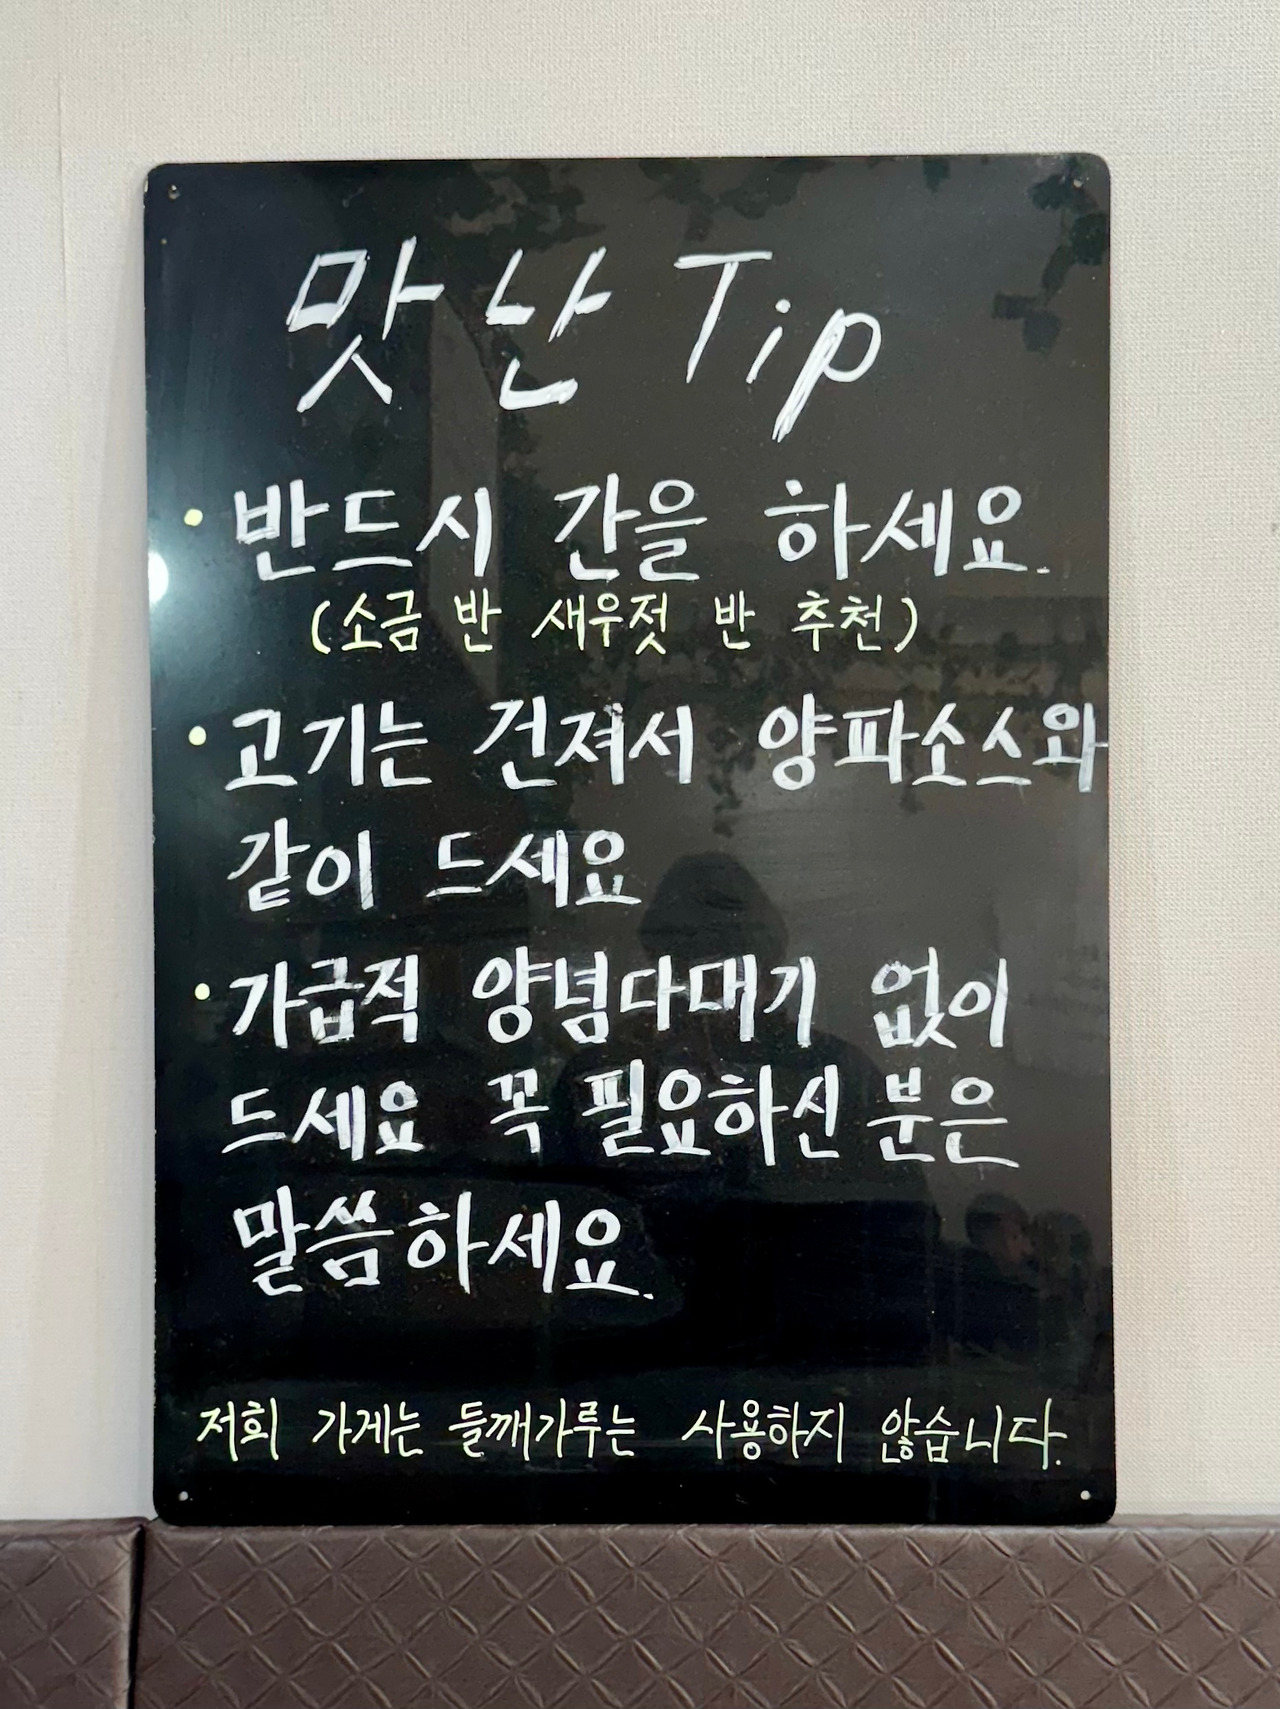 맛난 Tip
· 반드시 간을 하세요.
(소금 반 새우젓 반 추천)
· 고기는 건져서 양파소스와
같이 드세요
· 가급적 양념다대기 없이
드세요 꼭 필요하신 분은
말씀하세요.
저희 가게는 들깨가루는 사용하지 않습니다.